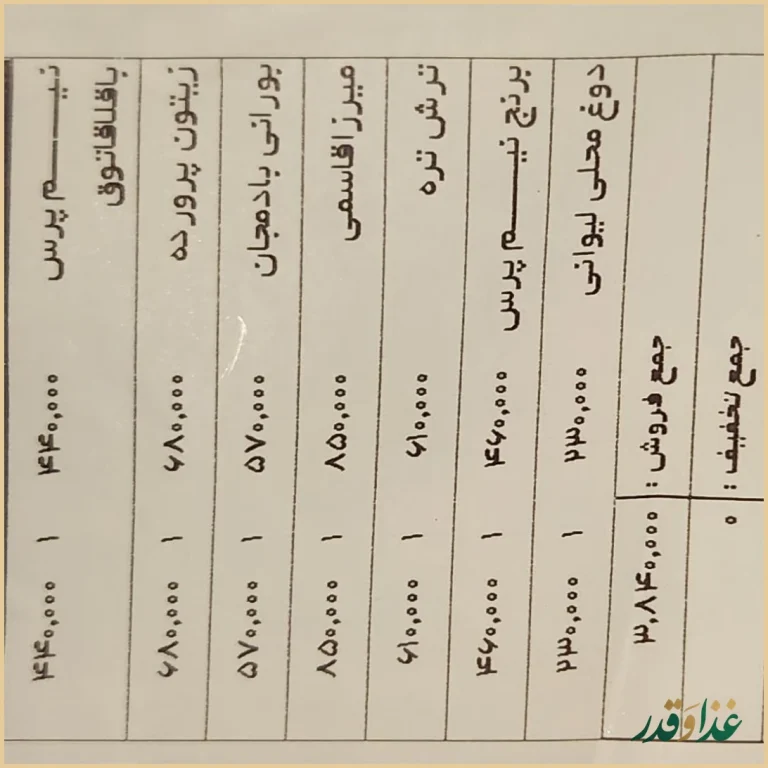 نیـــم پرس ۴۴۰,۰۰۰ ۱ ۴۴۰,۰۰۰
باقلاقاتوق
زیتون پرورده ۶۸۰,۰۰۰ ۱ ۶۸۰,۰۰۰
بورانی بادمجان ۵۷۰,۰۰۰ ۱ ۵۷۰,۰۰۰
میرزاقاسمی ۸۵۰,۰۰۰ ۱ ۸۵۰,۰۰۰
ترش تره ۶۱۰,۰۰۰ ۱ ۶۱۰,۰۰۰
برنج نیـــم پرس ۴۶۰,۰۰۰ ۱ ۴۶۰,۰۰۰
دوغ محلی لیوانی ۲۳۰,۰۰۰ ۱ ۲۳۰,۰۰۰
جمع فروش : ۳,۸۴۰,۰۰۰
جمع تخفیف : ۰
غذا و قدر